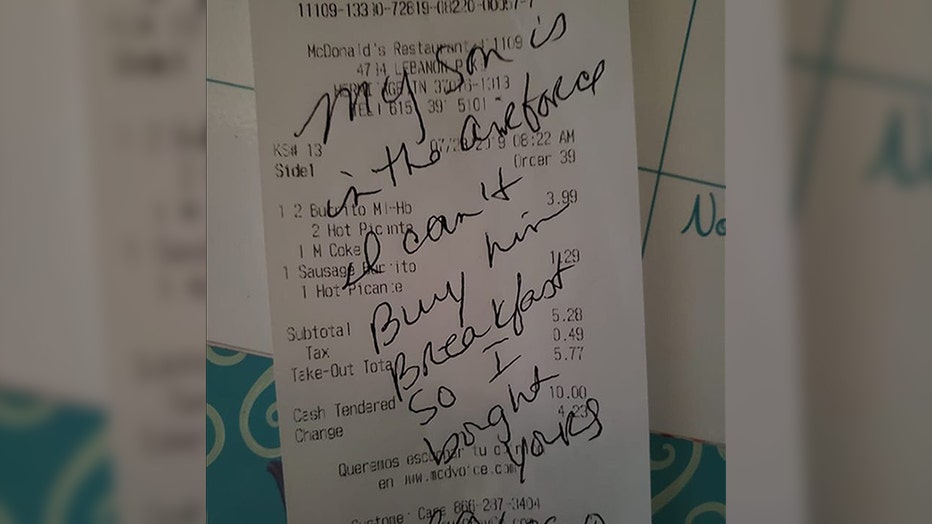 11109-13330-72819-08220-00057-7
McDonald's Restaurant 11109
LEBANON
TN 37076-1313
615 391 5101
KS# 13
08:22 AM
Side1
Order 39
1 2 Burrito Ml-Hb 3.99
2 Hot Picante
1 M Coke
1 Sausage Burrito 1.29
1 Hot Picante
Subtotal 5.28
Tax 0.49
Take-Out Total 5.77
Cash Tendered 10.00
Change 4.23
Queremos escuchar tu
en www.mcdvoice.com
Care 866-287-3404
My Son is
in the airforce
I can't
Buy him
Breakfast
So I
bought
yours
No